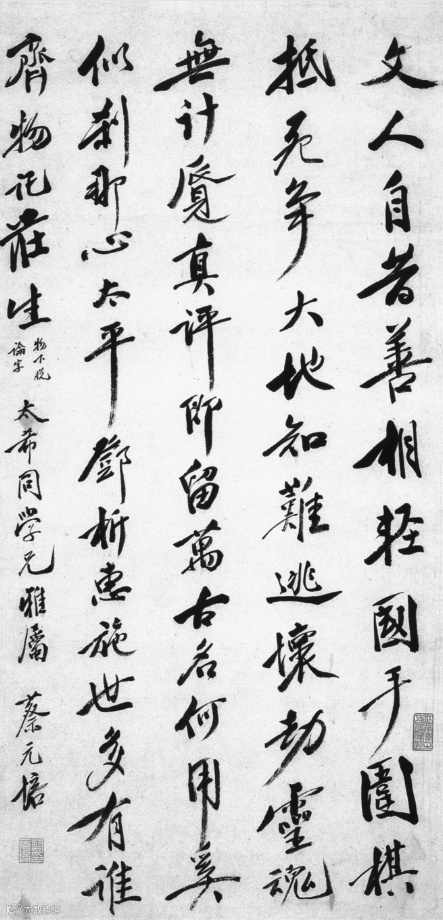 文人自昔善相輕國手圍棋
抵死爭大地知難逃壞劫靈魂
無計覓真評即留萬古名何用奚
似剎那心太平鄧析惠施世多有誰
齊物託莊生物下脫論字太希同學兄雅屬蔡元培